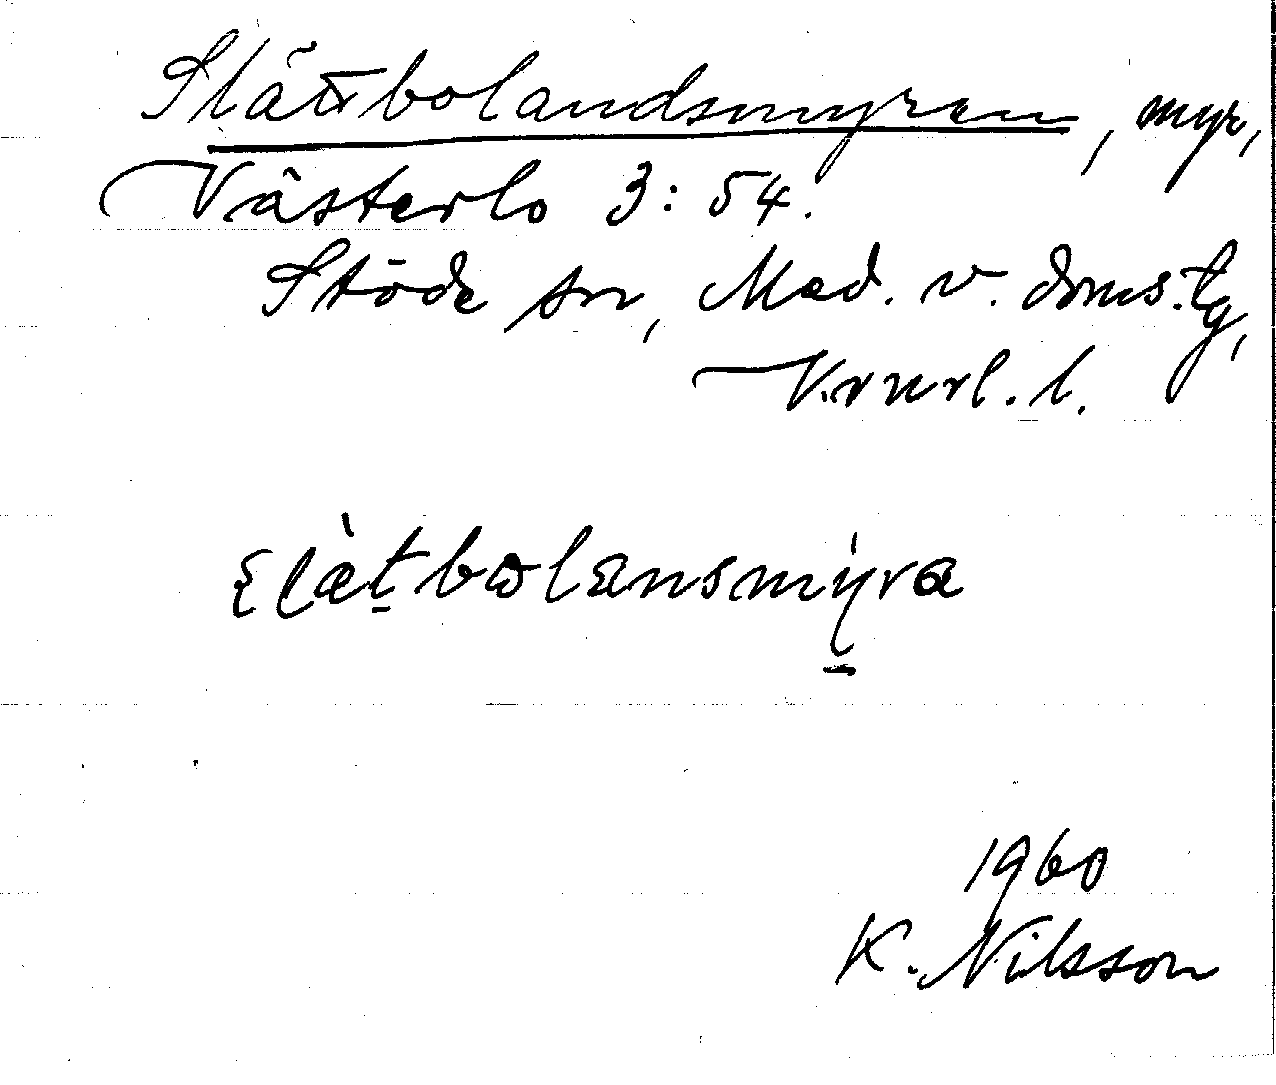 Slättbolandsmyren, myr,
Västerlo 3:54.
Stöde sn, Med. v. doms.tg,
Vnurl. l.
ʂɭæ̀t̠bωlansmy̠̍ra
1960
K. Nilsson